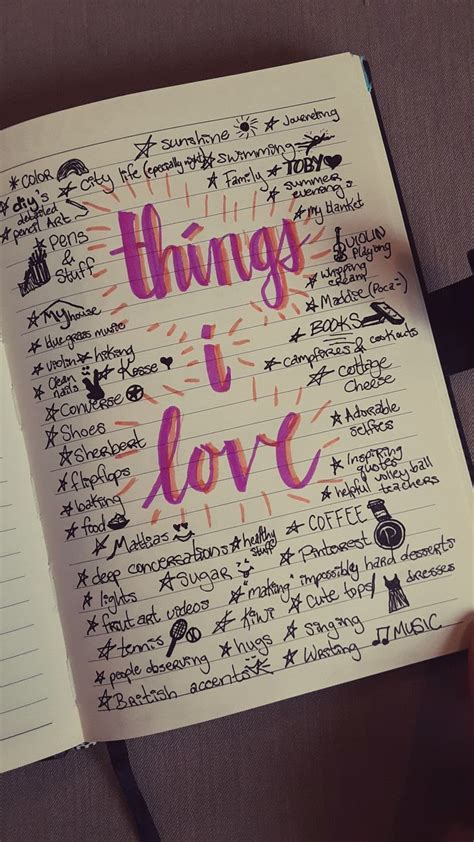 sunshine
Journeling
COLOR
city life (especially night)
swimming
diy's
Family
TOBY
detailed
pencil Art
summer
evenings
my blanket
Pens
&
Stuff
things
VIOLIN
Playing
whipping
creamy
My house
Maddse (Poca-)
blue grass music
BOOKS
violin
hiking
i
campfires & cookouts
Clean
nails
Kosse
cottage
cheese
Converse
Shoes
love
Adorable
selfies
Sherbert
flipflops
Inspiring
quotes
volley ball
baking
helpful teachers
food
Mattias
COFFEE
deep conversations
healthy
stuff
Pinterest
lights
Sugar
making "impossibly hard desserts
fruit art videos
Kiwi
cute tops/
dresses
tennis
hugs
Singing
MUSIC
people observing
Writing
British accents